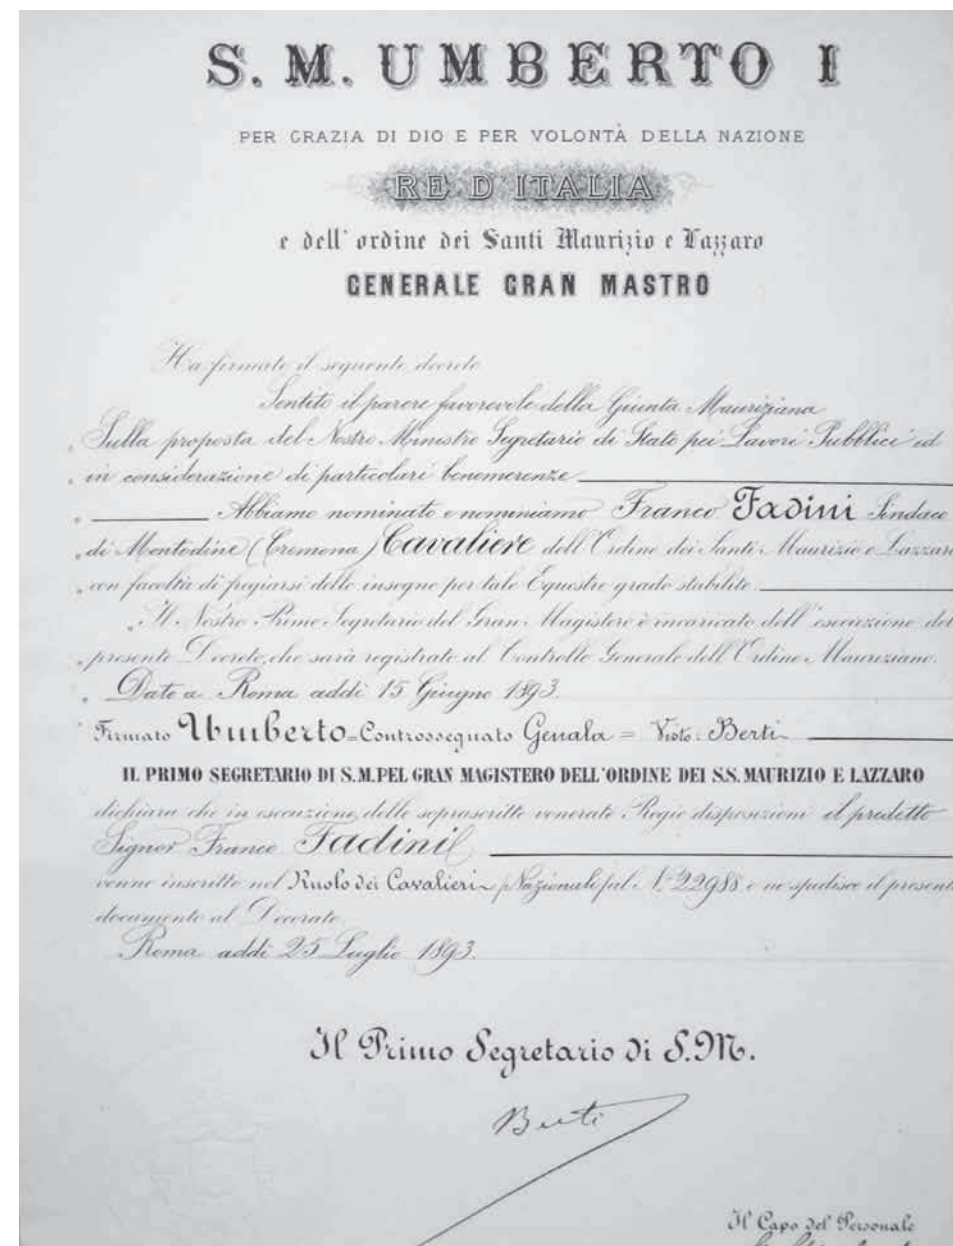 S. M. UMBERTO I
PER GRAZIA DI DIO E PER VOLONTÀ DELLA NAZIONE
RE D'ITALIA
e dell'ordine dei Santi Maurizio e Lazzaro
GENERALE GRAN MASTRO
Ha firmato il seguente decreto
Sentito il parere favorevole della Giunta Mauriziana
„Sulla proposta del Nostro Ministro Segretario di Stato pei Lavori Pubblici ed
„in considerazione di particolari benemerenze
„ Abbiamo nominato e nominiamo Franco Fadini Sindaco
„di Montodine (Cremona) Cavaliere dell'Ordine dei Santi Maurizio e Lazzaro
„con facoltà di fregiarsi delle insegne per tale Equestre grado stabilite.
„Il Nostro Primo Segretario del Gran Magistero è incaricato dell'esecuzione del
„presente Decreto, che sarà registrato al Controllo Generale dell'Ordine Mauriziano.
„Dato a Roma addì 15 Giugno 1893.
Firmato Umberto = Controssegnato Genala = Visto: Berti
IL PRIMO SEGRETARIO DI S.M. PEL GRAN MAGISTERO DELL'ORDINE DEI S.S. MAURIZIO E LAZZARO
dichiara che in esecuzione delle soprascritte venerate Regie disposizioni il predetto
Signor Franco Fadini
venne inscritto nel Ruolo dei Cavalieri Nazionali al N. 22988 e ne spedisce il presente
documento al Decorato
Roma addì 25 Luglio 1893.
Il Primo Segretario di S.M.
Berti
Il Capo del Personale